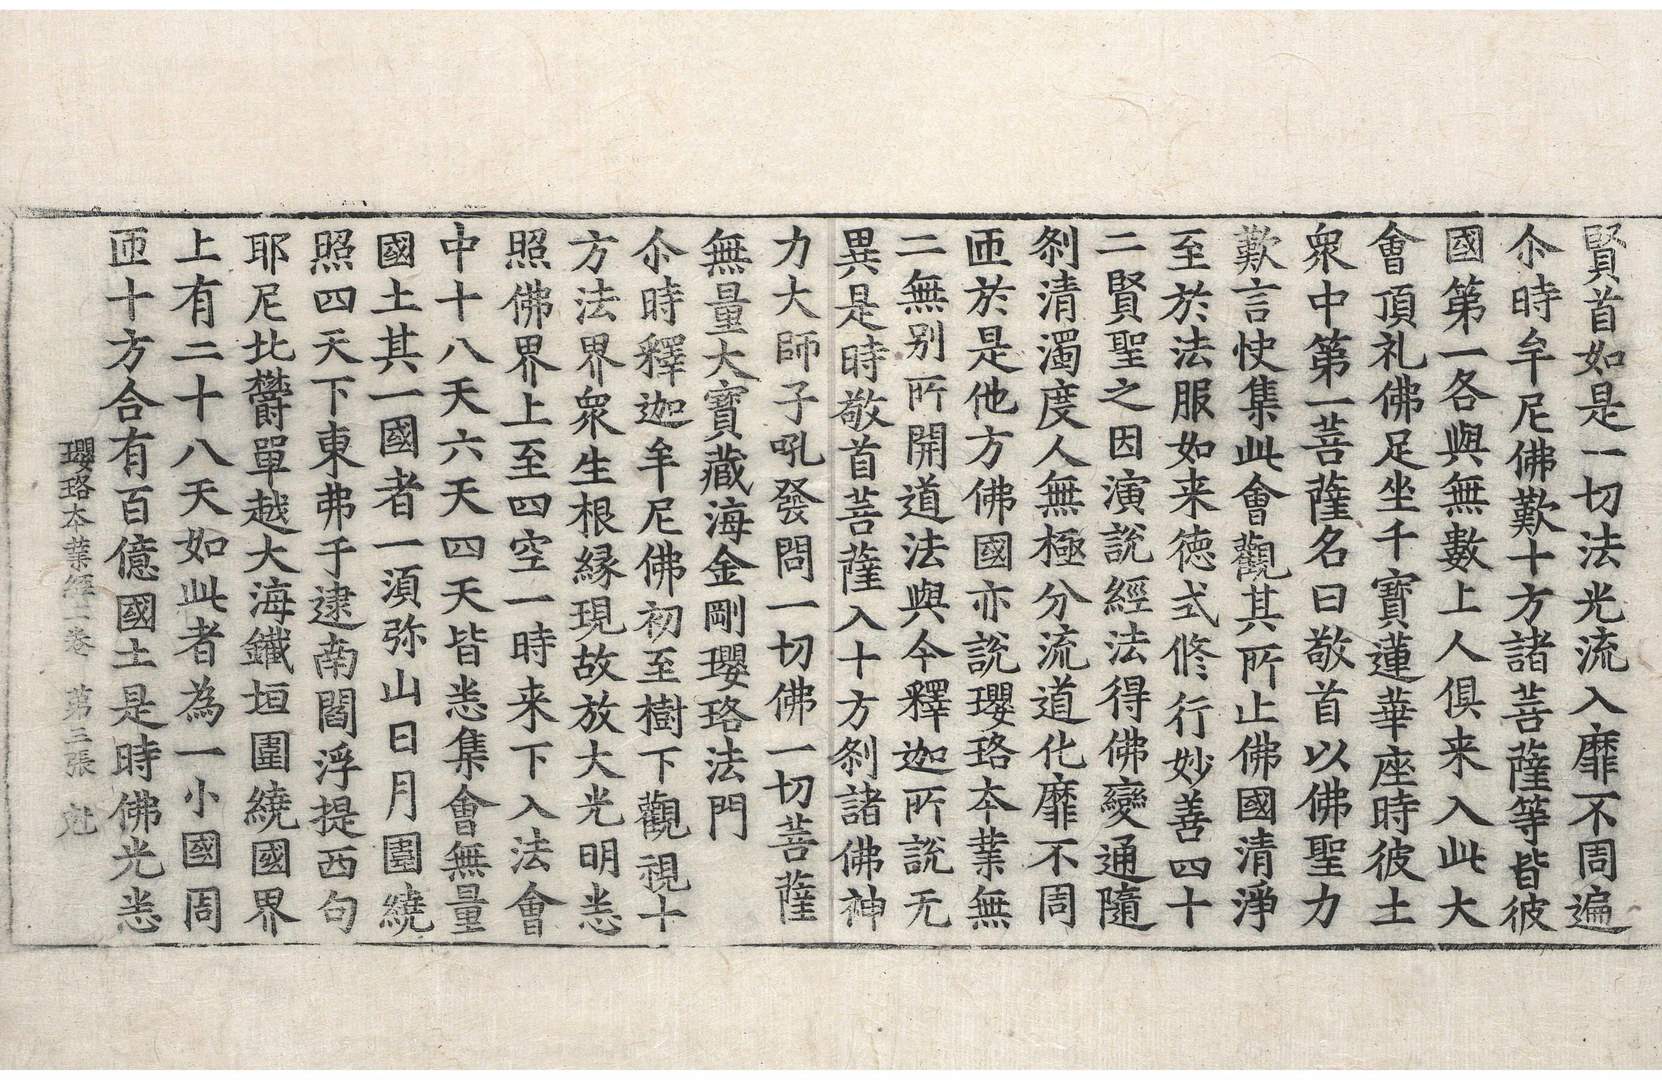 賢首如是一切法光流入靡不周遍
尒時牟尼佛歎十方諸菩薩等皆彼
國第一各與無數上人俱来入此大
會頂礼佛足坐千寶蓮華座時彼土
衆中第一菩薩名曰敬首以佛聖力
歎言快集此會觀其所止佛國清淨
至於法服如来徳式修行妙善四十
二賢聖之因演說經法得佛變通隨
刹清濁度人無極分流道化靡不周
匝於是他方佛國亦說瓔珞夲業無
二無别所開道法與今釋迦所說无
異是時敬首菩薩入十方刹諸佛神
力大師子吼發問一切佛一切菩薩
無量大寶藏海金剛瓔珞法門
尒時釋迦牟尼佛初至樹下觀視十
方法界衆生根縁現故放大光明悉
照佛界上至四空一時来下入法會
中十八天六天四天皆悉集會無量
國土其一國者一須弥山日月圍繞
照四天下東弗于逮南閻浮提西句
耶尼北欝單越大海鐵垣圍繞國界
上有二十八天如此者為一小國周
匝十方合有百億國土是時佛光悉
瓔珞夲業經上卷　第三張　䖏